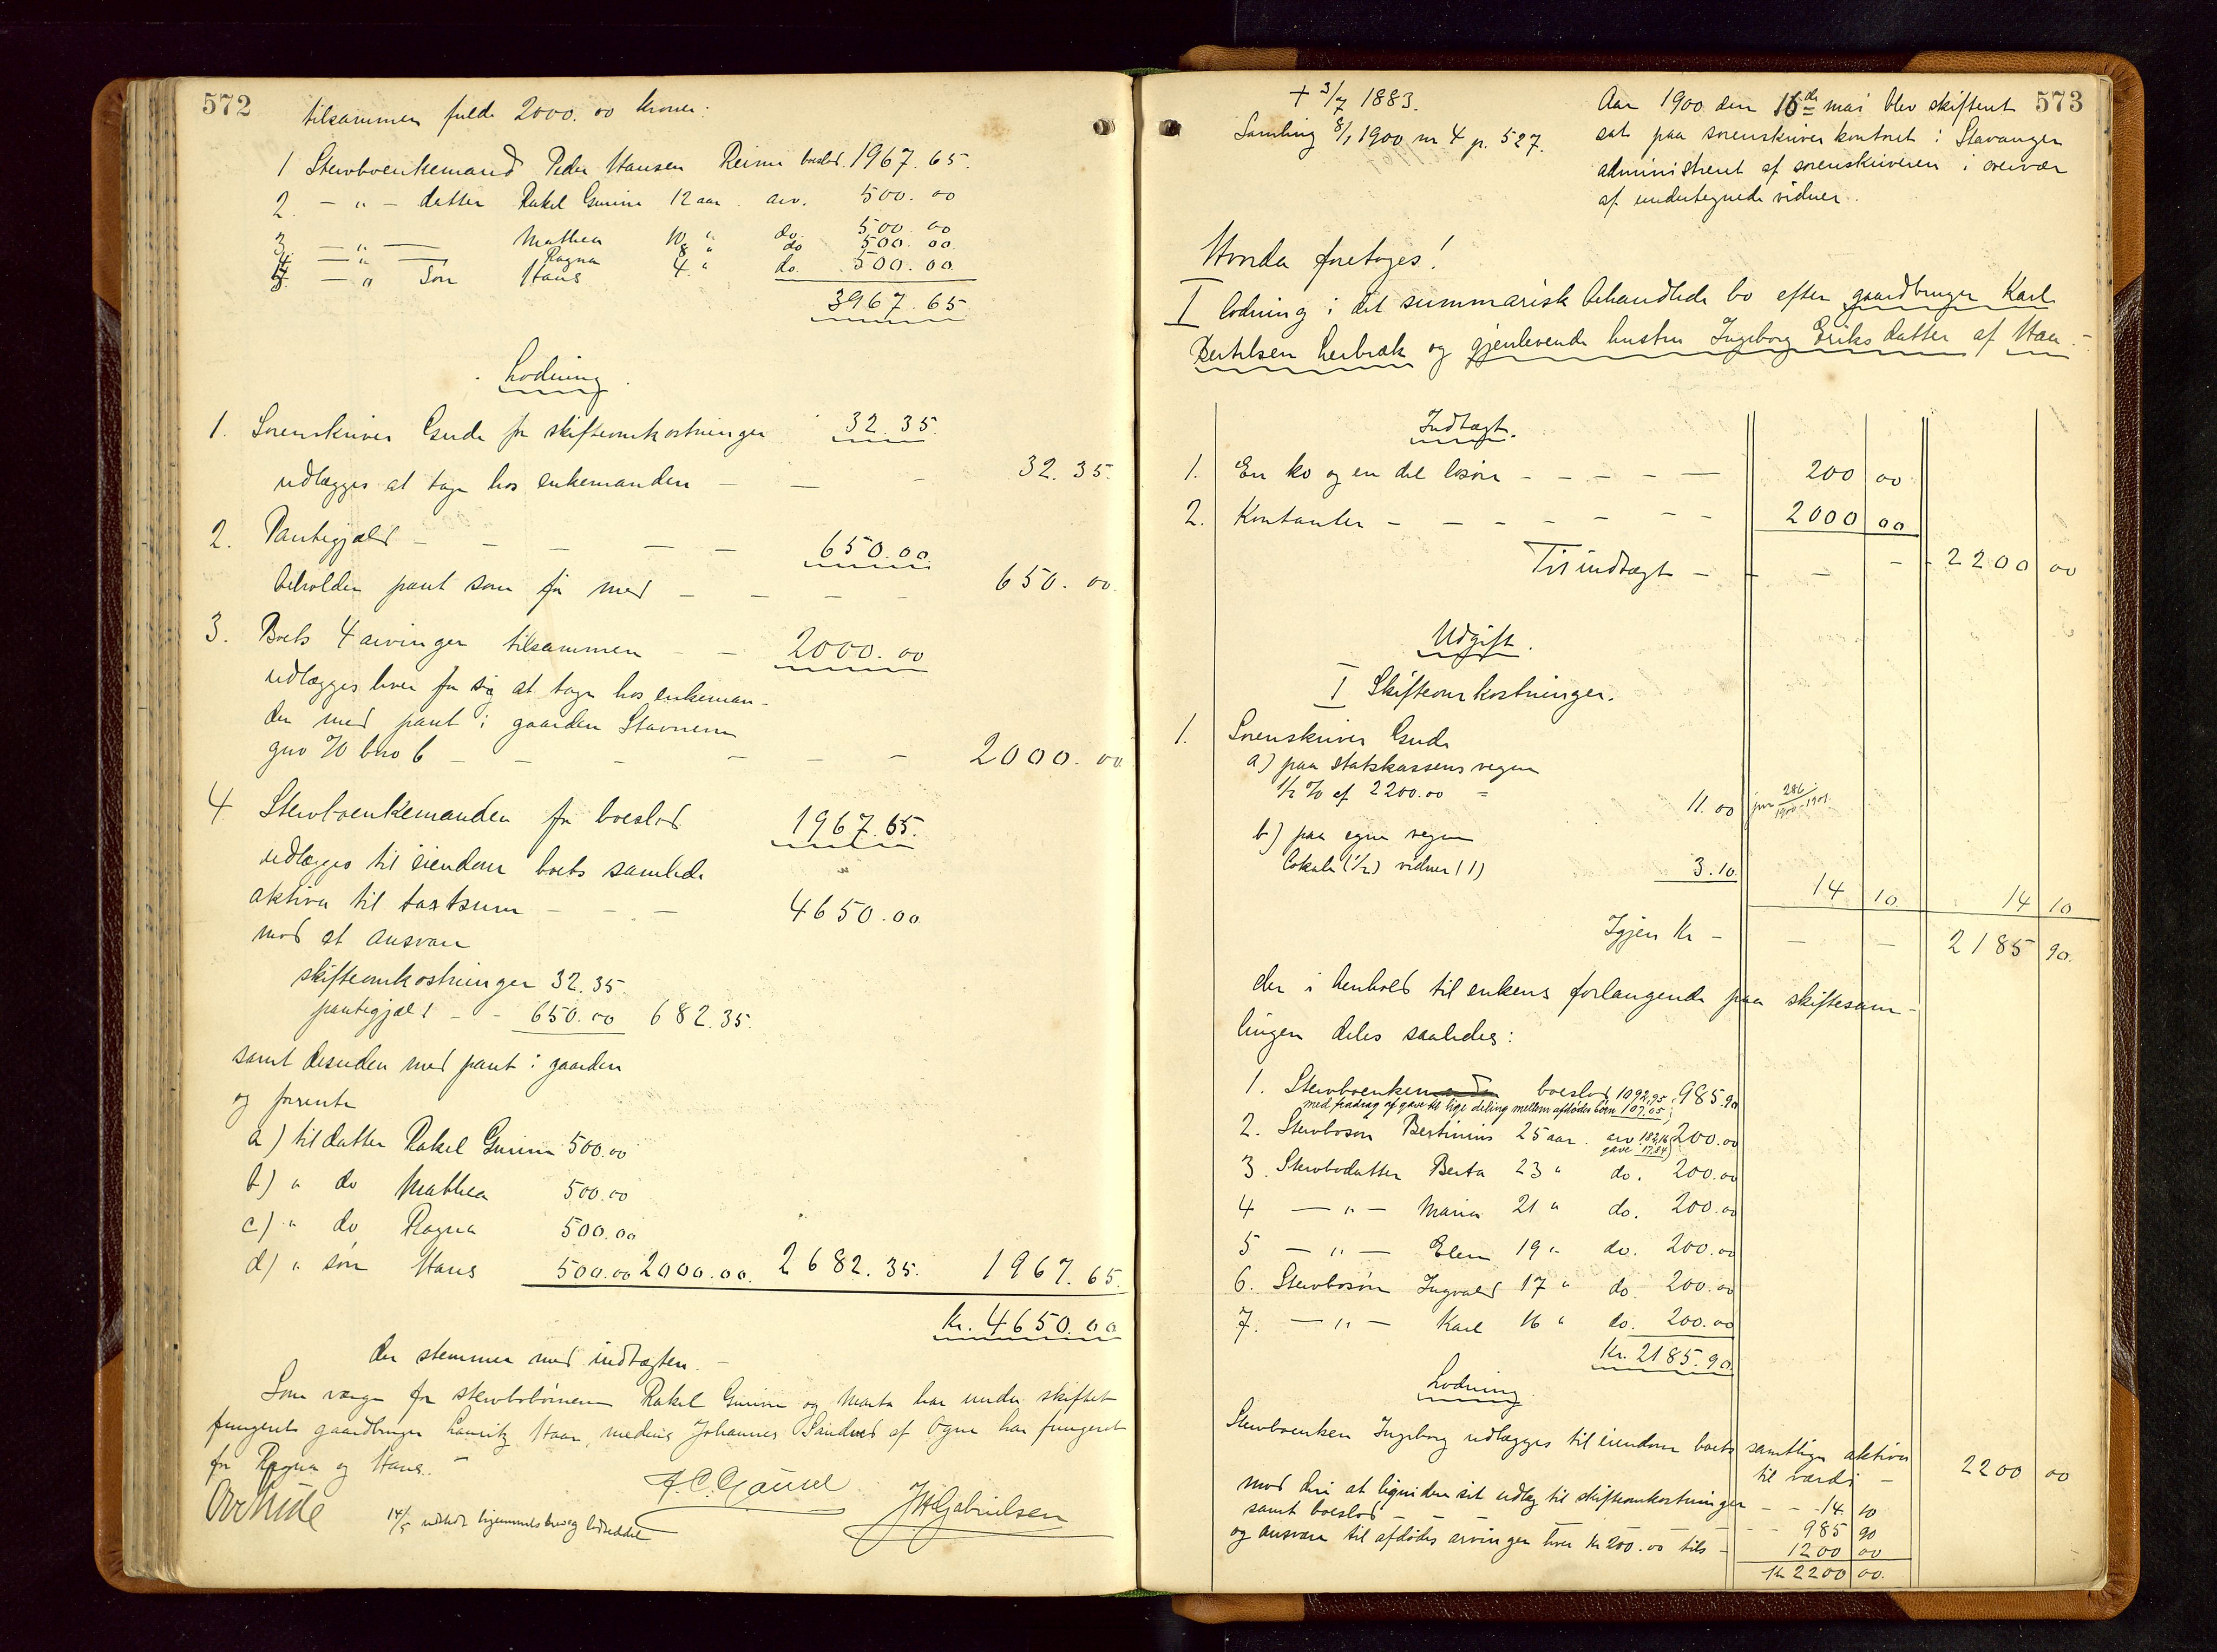 572
tilsammen fulde 2000.00 kroner:
1 Stervboenkemand Peder Hansen Reime boeslod. 1967.65.
2. - " - datter Rakel Gurine 12 aar. arv. 500.00
3. - " - Mathea 10 " do. 500.00
4. - " - Ragna 8 " do 500.00.
5. - " Søn Hans 4. " do. 500.00.
3967.65
Lodning.
1. Sorenskriver Gude for skifteomkostninger 32.35.
udlægges at tage hos enkemanden - - - 32.35.
2. Pantegjæld - - - - - 650.00
beholder pant som før med - - - - 650.00.
3. Boets 4 arvinger tilsammen - - 2000.00
udlægges hver for sig at tage hos enkeman-
den med pant i gaarden Stavnem
gno 70 bno 6 - - - - - - 2000.00
4 Stervboenkemanden for boeslod 1967.65.
udlægges til eiendom boets samlede
aktiva til taxtsum - - - 4650.00
mod at ansvare
skifteomkostninger 32.35.
pantegjæld - - 650.00 682.35.
samt desuden med pant i gaarden
og forrente
a) til datter Rakel Gurine 500.00
b) " do Mathea 500.00
c) " do Ragna 500.00
d) " søn Hans 500.00 2000.00. 2682.35. 1967.65.
Kr. 4650.00
der stemmer med indtægten. -
Som værge for stervbobørnene Rakel Gurine og Marta har under skiftet
fungeret gaardbruger Lauritz Haar, medens Johannes Sandved af Ogne har fungeret
for Ragna og Hans. -
Ove Gude A. C. Gausel
14/5 udstedt hjemmelsbrev og lodseddel JHGabrielsen
573
+ 3/7 1883.
Samling 8/1 1900 nr 4 p. 527.
Aar 1900 den 16de mai blev skifteret
sat paa sorenskriverkontoret i Stavanger
administreret af sorenskriveren i overvær
af undertegnede vidner.
Hvorda foretoges!
I lodning i det summarisk behandlede bo efter gaardbruger Karl
Bertelsen Herbræk og gjenlevende hustru Ingeborg Eriksdatter af Haa. -
Indtægt.
1. En ko og en del løsøre - - - - - 200 00
2. Kontanter - - - - - - - 2000 00
Tilsindtægt - - - - 2200 00
Udgift.
I Skifteomkostninger.
1. Sorenskriver Gude
a) paa statskassens vegne
1/2 % af 2200.00 = 11.00 jnr 286/1900-1901
b) paa egne vegne
lokale (1/2) vidner (1) 3.10. 14 10. 14 10
Igjen Kr - - - 2185 90.
der i henhold til enkens forlangende paa skiftesam-
lingen deles saaledes:
1. Stervboenken boeslod 1092,95, 985.90
med fradrag af gave til lige deling mellem afdødes børn 107,05;
2. Stervbosøn Bertinius 25 aar. arv 182,16 200.00
gave 17.84)
3. Stervbodatter Berta 23 " do. 200.00
4 - " - Maria 21 " do. 200.00
5 - " - Elen 19 " do. 200.00
6. Stervbosøn Ingvald 17 " do. 200.00
7. - " - Karl 16 " do. 200.00
Kr. 2185.90.
Lodning.
Stervboenken Ingeborg udlægges til eiendom boets samtlige aktiver
til værdi - 2200 00
mod din at liquidere sit udlæg til skifteomkostninger - - - 14. 10
samt boeslod - - - - - - - - 985 90
og ansvare til afdødes arvinger hver Kr 200.00 tils - 1200 00
Kr 2200 00.